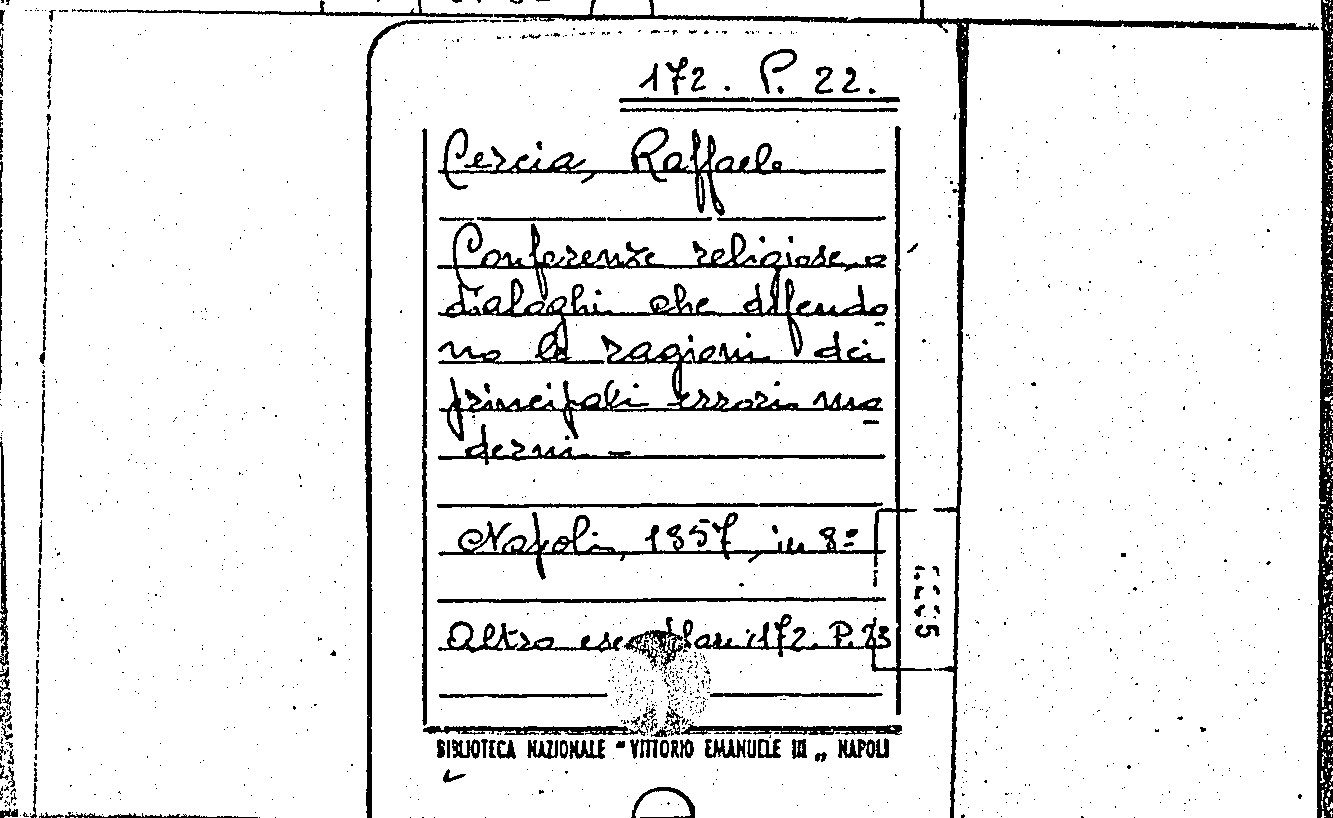 172. P. 22.
Cercia, Raffaele
Conferenze religiose, o
dialoghi che difendo
no le ragioni dei
principali errori mo
derni -
Napoli, 1857, in 8º
Altro esemplare: 172. P. 23
BIBLIOTECA NAZIONALE " VITTORIO EMANUELE III „ NAPOLI